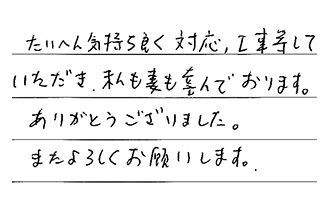 たいへん気持ち良く対応,工事等して
いただき、私も妻も喜んでおります。
ありがとうございました。
またよろしくお願いします。